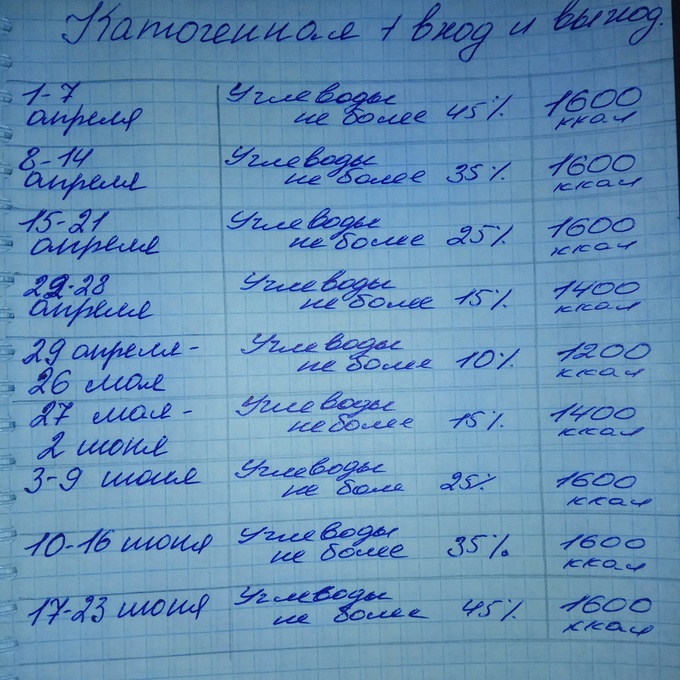 Катогенная + вход и выход.
1-7 апреля Углеводы не более 45% 1600 ккал
8-14 апреля Углеводы не более 35% 1600 ккал
15-21 апреля Углеводы не более 25% 1600 ккал
22-28 апреля Углеводы не более 15% 1400 ккал
29 апреля - 26 мая Углеводы не более 10% 1200 ккал
27 мая - 2 июня Углеводы не более 15% 1400 ккал
3-9 июня Углеводы не боле 25% 1600 ккал
10-16 июня Углеводы не более 35% 1600 ккал
17-23 июня Углеводы не более 45% 1600 ккал